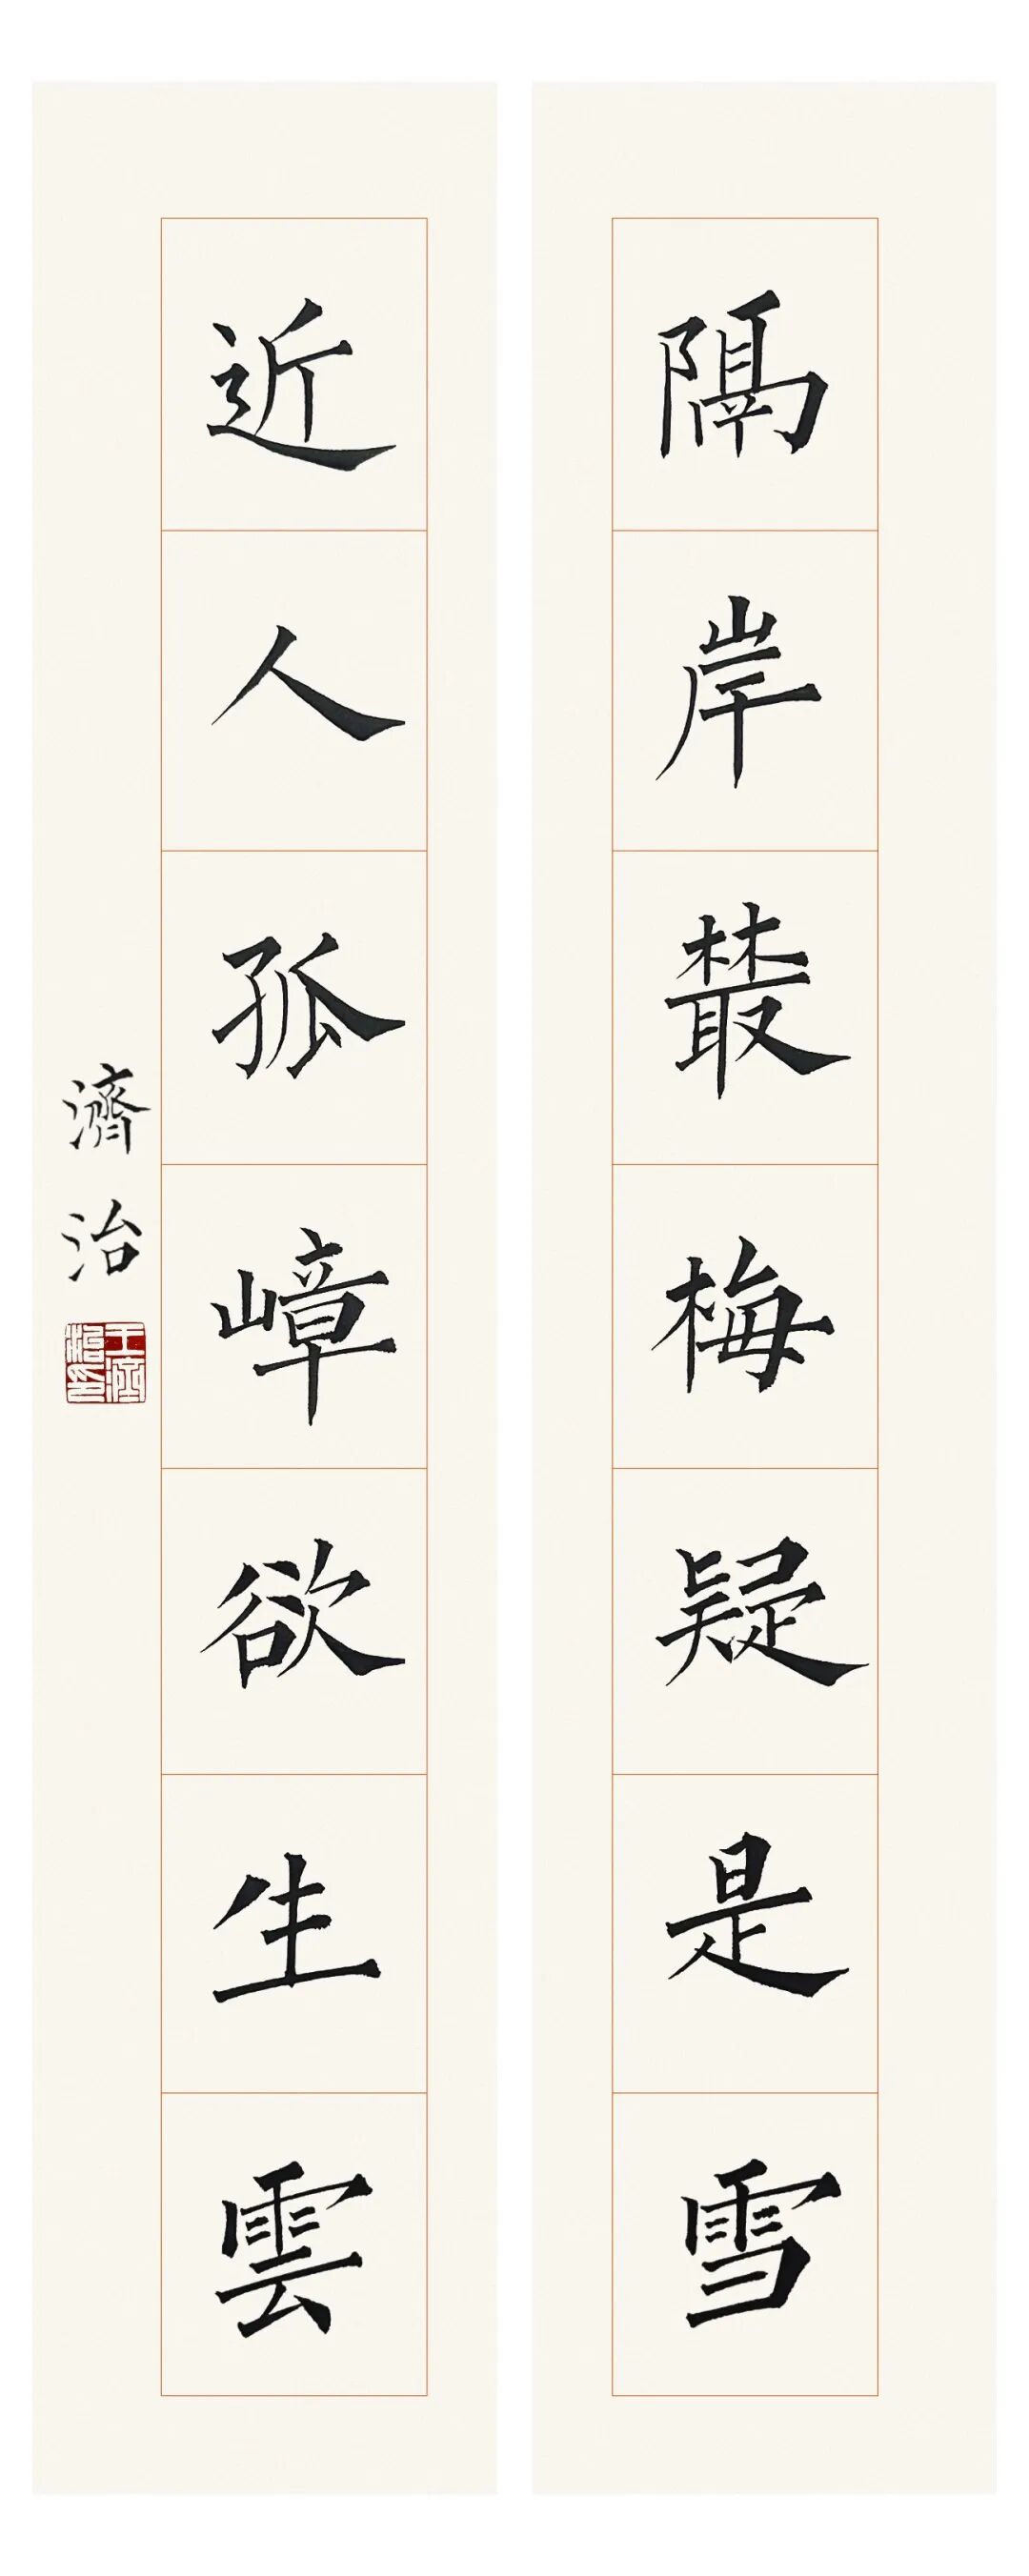 隔岸藂梅疑是雪
近人孤嶂欲生雲
濟治
王濟治印